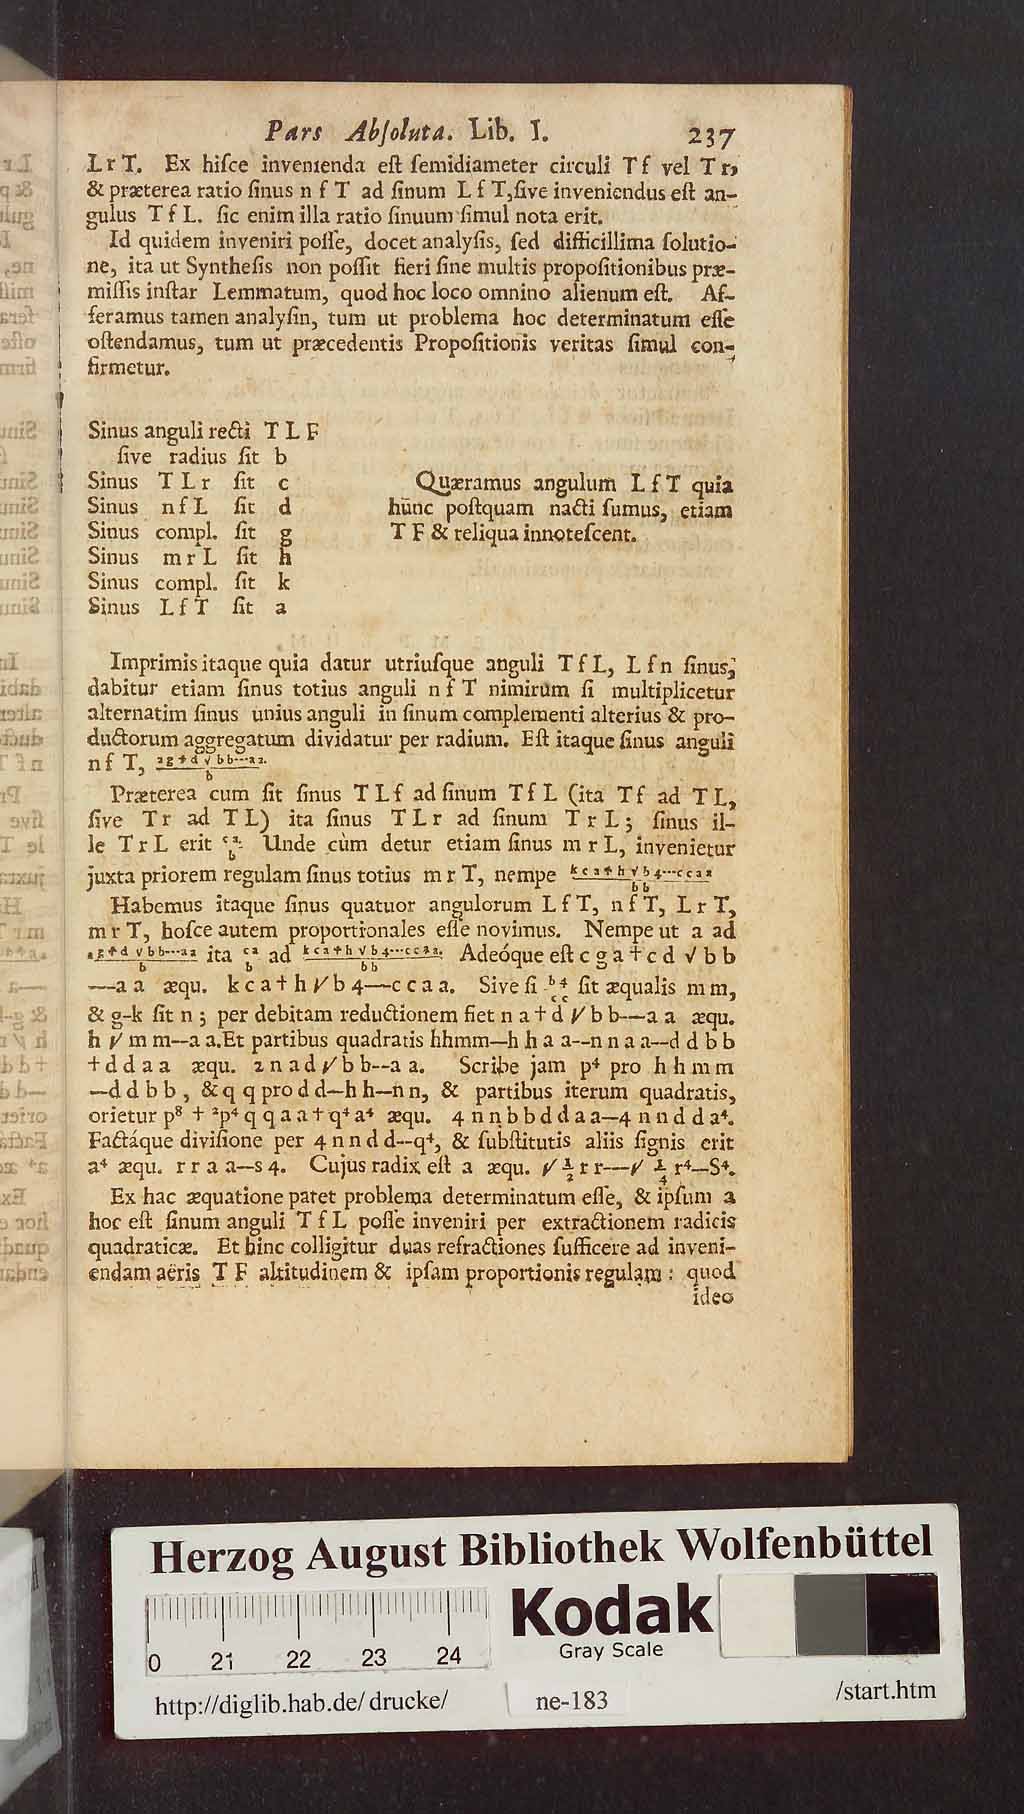 Pars Abſoluta. Lib. I. 237
L r T. Ex hiſce invenienda eſt ſemidiameter circuli T f vel T r,
& præterea ratio ſinus n f T ad ſinum L f T, ſive inveniendus eſt an-
gulus T f L. ſic enim illa ratio ſinuum ſimul nota erit.
Id quidem inveniri poſſe, docet analyſis, ſed difficillima ſolutio-
ne, ita ut Syntheſis non poſſit fieri ſine multis propoſitionibus præ-
miſſis inſtar Lemmatum, quod hoc loco omnino alienum eſt. Af-
feramus tamen analyſin, tum ut problema hoc determinatum eſſe
oſtendamus, tum ut præcedentis Propoſitionis veritas ſimul con-
firmetur.
Sinus anguli recti T L F
ſive radius ſit b
Sinus T L r ſit c
Sinus n f L ſit d
Sinus compl. ſit g
Sinus m r L ſit h
Sinus compl. ſit k
Sinus L f T ſit a
Quæramus angulum L f T quia
hūnc poſtquam nacti ſumus, etiam
T F & reliqua innoteſcent.
Imprimis itaque quia datur utriuſque anguli T f L, L f n ſinus,
dabitur etiam ſinus totius anguli n f T nimirum ſi multiplicetur
alternatim ſinus unius anguli in ſinum complementi alterius & pro-
ductorum aggregatum dividatur per radium. Eſt itaque ſinus anguli
n f T, ag+d√bb---aa. / b
Præterea cum ſit ſinus T L f ad ſinum T f L (ita T f ad T L,
ſive T r ad T L) ita ſinus T L r ad ſinum T r L; ſinus il-
le T r L erit ca / b. Unde cùm detur etiam ſinus m r L, invenietur
juxta priorem regulam ſinus totius m r T, nempe kca+h√b4---ccaa / bb
Habemus itaque ſinus quatuor angulorum L f T, n f T, L r T,
m r T, hoſce autem proportionales eſſe novimus. Nempe ut a ad
ag+d√bb---aa / b ita ca / b ad kca+h√b4---ccaa. / bb Adeóque eſt c g a + c d √ b b
—a a æqu. k c a + h √ b 4—c c a a. Sive ſi b4 / cc ſit æqualis m m,
& g-k ſit n ; per debitam reductionem fiet n a + d √ b b—a a æqu.
h √ m m--a a. Et partibus quadratis hhmm—h h a a--n n a a—d d b b
+ d d a a æqu. 2 n a d √ b b--a a. Scribe jam p⁴ pro h h m m
—d d b b , & q q pro d d—h h—n n, & partibus iterum quadratis,
orietur p⁸ + ²p⁴ q q a a + q⁴ a⁴ æqu. 4 n n b b d d a a—4 n n d d a⁴.
Factáque diviſione per 4 n n d d--q⁴, & ſubſtitutis aliis ſignis erit
a⁴ æqu. r r a a—s 4. Cujus radix eſt a æqu. √ 1/2 r r—√ 1/4 r⁴—S⁴.
Ex hac æquatione patet problema determinatum eſſe, & ipſum a
hoc eſt ſinum anguli T f L poſſe inveniri per extractionem radicis
quadraticæ. Et hinc colligitur duas refractiones ſufficere ad inveni-
endam aëris T F altitudinem & ipſam proportionis regulam : quod
ideo
Herzog August Bibliothek Wolfenbüttel
Kodak
Gray Scale
0 21 22 23 24
http://diglib.hab.de/drucke/ ne-183 /start.htm